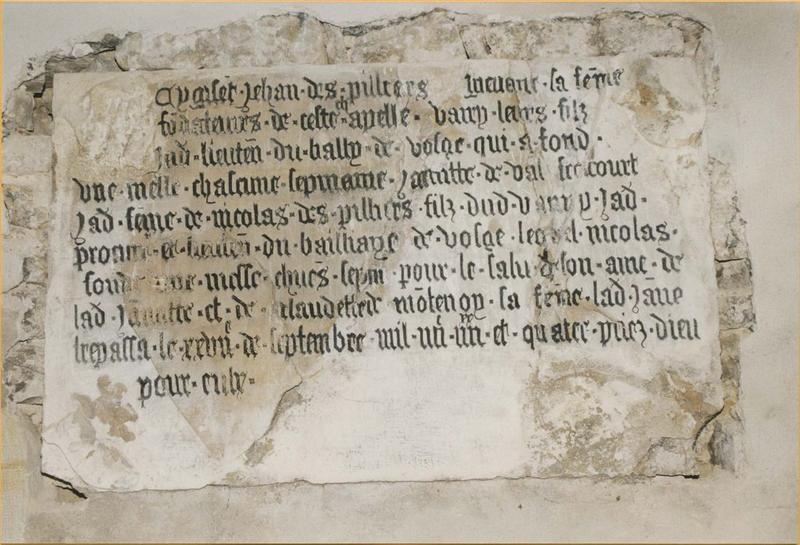 Cy giset Jehan · des · pilliers Jacquate · sa · fēme
fōdateurs · de · ceste · chapelle · varry · leurs · filz
Jad · lieuten̄ · du · bally · de · vosge · qui · a · fond ·
vne · messe · chascune · sepmaine · de · val court
Jad · feme · de · nicolas · des · pilliers · filz · dud · varry · Jad ·
et · lieuten̄ · du · bailliage de · vosge · led nicolas ·
fonde vne · messe · chūes · sepm̄ · pour · le · salu · de · son · ame · de
lad · et · de · claudette de mōtenoy · sa · fēme · lad · Jāne
trepassa · le · xxvii · de · septembre · mil · iiii · iiii · et · quatre · priez · dieu
pour · eulx ·